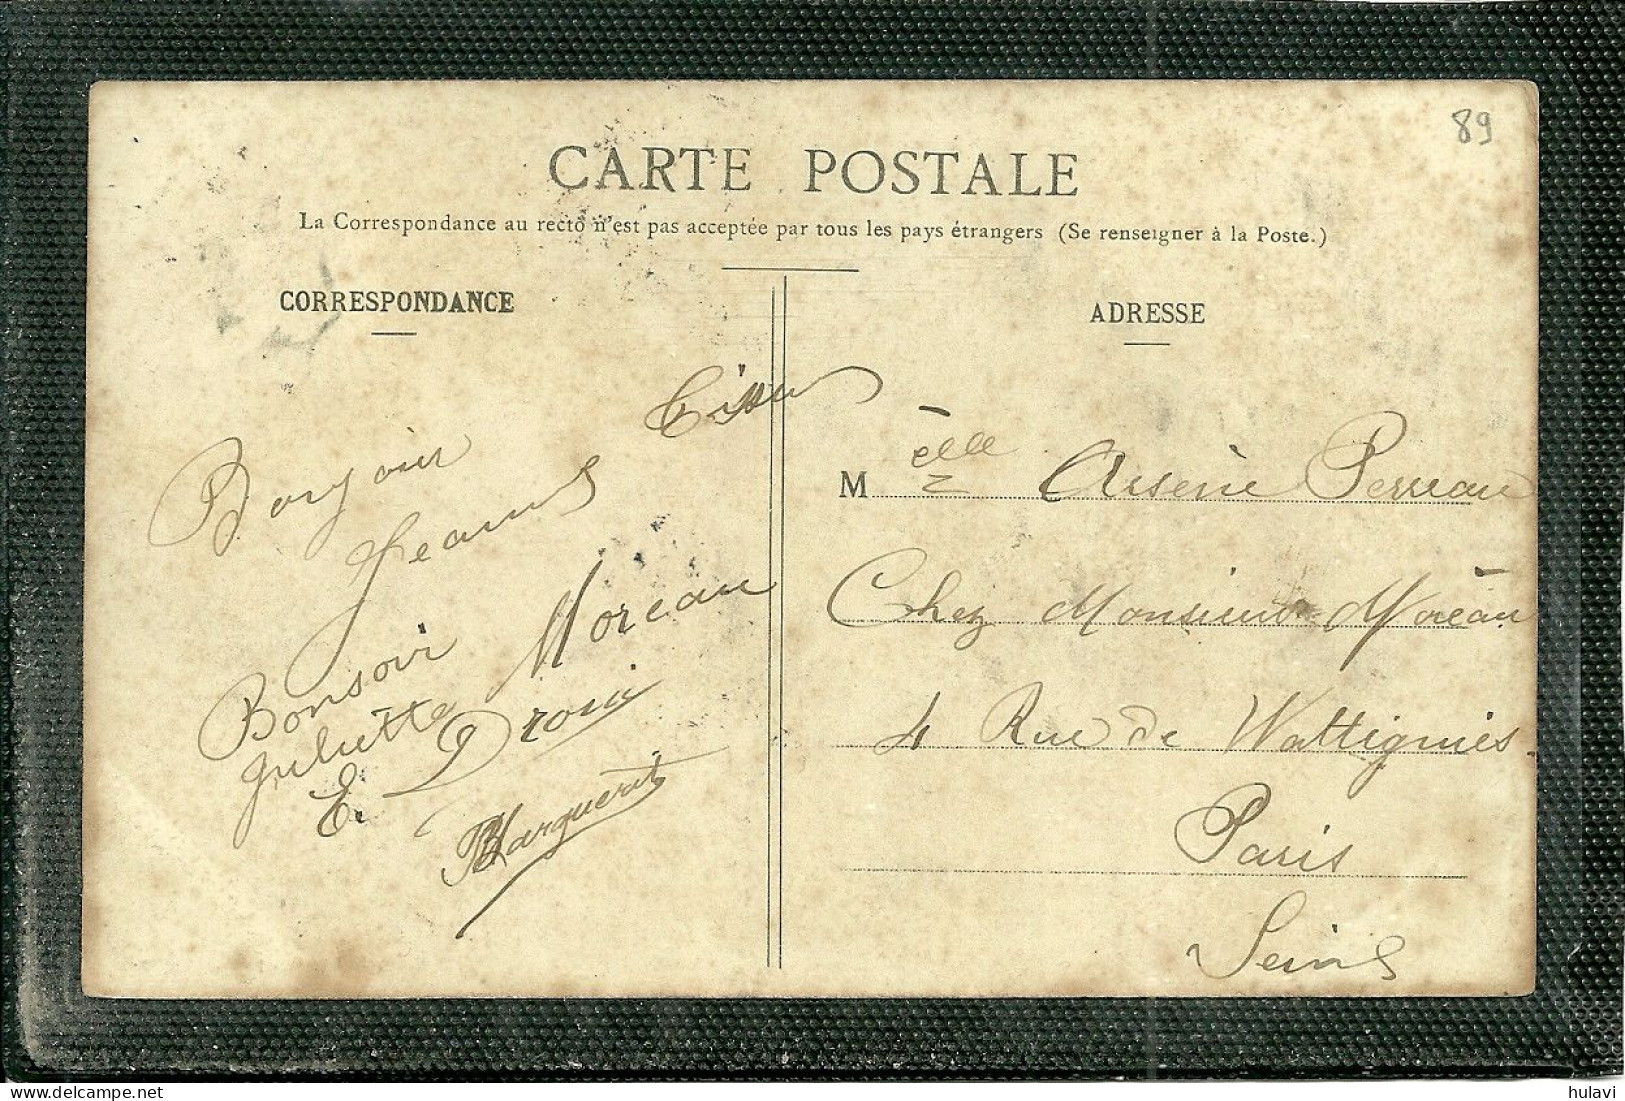 89
CARTE POSTALE
La Correspondance au recto n'est pas acceptée par tous les pays étrangers (Se renseigner à la Poste.)
CORRESPONDANCE
Bonjour
Jeanne
Bonsoir
Juliette Moreau
E. Droin
Marguerite
ADRESSE
Melle Arsène Perreau
Chez Monsieur Moreau
4 Rue de Wattignies
Paris
Seine
hulavi